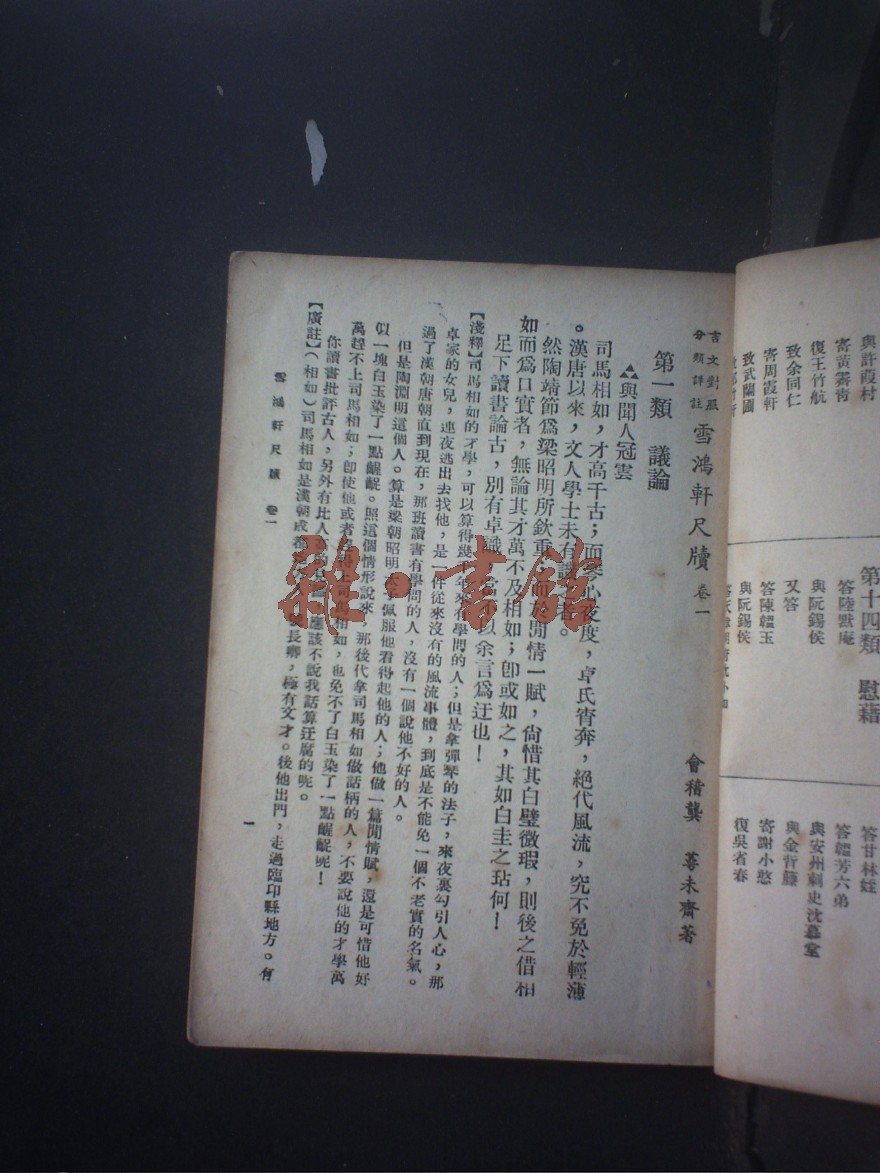 與許葭村
寄黃霽青
復王竹航
致余同仁
寄周霞軒
致武蘭圃
第十四類 慰藉
答陸默庵
與阮錫侯
又答
答陳韞玉
與阮錫侯
答甘林姪
答韞芳六弟
與安州刺史沈慕堂
與金香藤
寄謝小憨
復吳省春
言文對照
分類詳註 雪鴻軒尺牘 卷一
會稽龔 萼未齋著
第一類 議論
與聞人冠雲
司馬相如,才高千古;而琴心夜度,卓氏宵奔,絕代風流,究不免於輕薄
。漢唐以來,文人學士未有譏之者。
然陶靖節爲梁昭明所欽重;而於閒情一賦,尙惜其白璧微瑕,則後之借相
如而爲口實者,無論其才萬不及相如;卽或如之,其如白圭之玷何!
足下讀書論古,別有卓識,當不以余言爲迂也!
【淺釋】司馬相如的才學,可以算得幾千年來有學問的人;但是拿彈琴的法子,來夜裏勾引人心,那
卓家的女兒,連夜逃出去找他,是一件從來沒有的風流事體,到底是不能免一個不老實的名氣。
過了漢朝唐朝直到現在,那班讀書有學問的人,沒有一個說他不好的人。
但是陶淵明這個人。算是梁朝昭明太子佩服他看得起他的人;他做一篇閒情賦,還是可惜他好
似一塊白玉染了一點齷齪。照這個情形說來,那後代拿司馬相如做話柄的人,不要說他的才學萬
萬趕不上司馬相如;卽使他或者趕得上司馬相如,也免不了白玉染了一點齷齪呢!
你讀書批許古人,另外有比人高的見識,應該不說我話算迂腐的呢。
【廣註】(相如)司馬相如是漢朝成都人,號長卿,極有文才。後他出門,走過臨邛縣地方。有
雪鴻軒尺牘 卷一
一
雜·書館